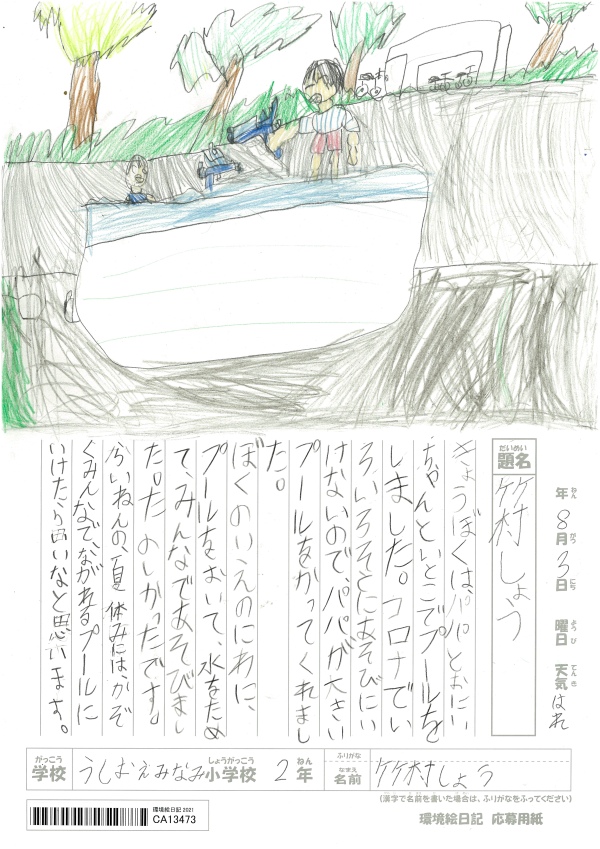 年 8月 3日 曜日 天気 はれ
ねん がつ にち ようび てんき
だいめい
題名 竹村しょう
きょうぼくは、パパとおにい
ちゃんといとこでプールを
しました。コロナでい
ろいろそとにあそびにい
けないので、パパが大きい
プールをかってくれまし
た。
ぼくのいえのにわに、
プールをおいて、水をため
て、みんなであそびまし
た。たのしかったです。
らいねんの、夏休みには、かぞ
くみんなで、ながれるプールに
いけたら良いなと思います。
がっこう しょうがっこう ねん ふりがな なまえ
学校 うしおえみなみ小学校 2年 名前 竹村しょう
(漢字で名前を書いた場合は、ふりがなをふってください)
環境絵日記 2021
CA13473
環境絵日記 応募用紙